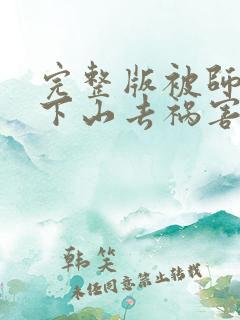 完整版被师
下山去祸害
韩笑
未经同意禁止转载